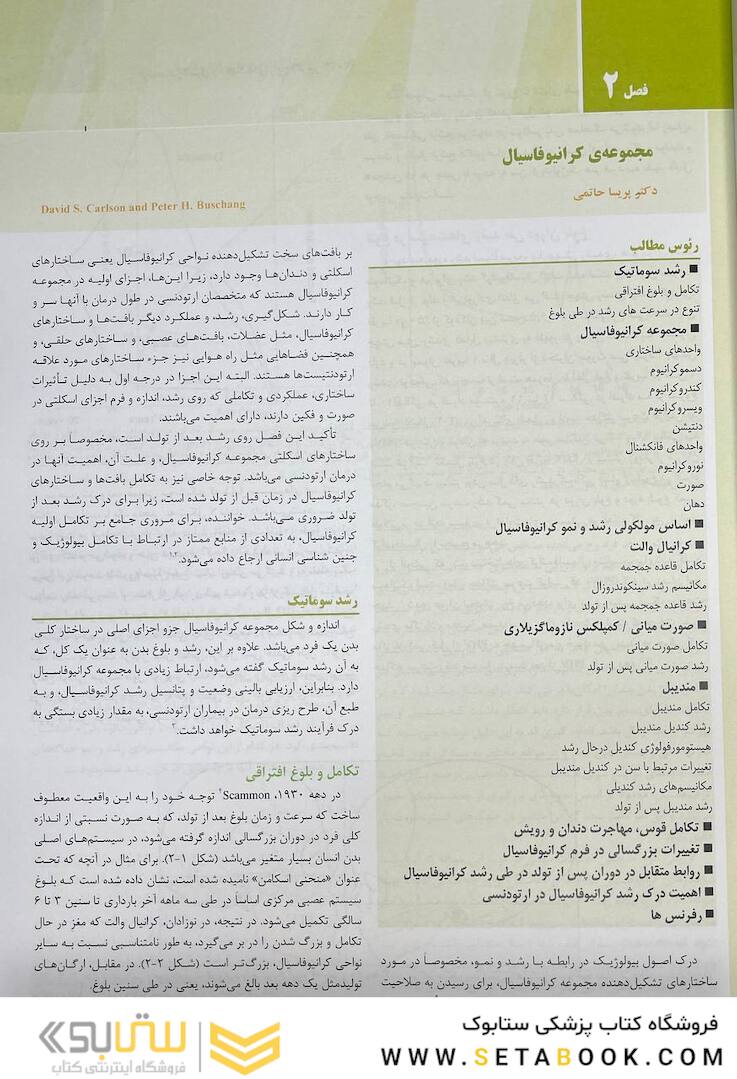 فصل ۲
مجموعه‌ی کرانیوفاسیال
دکتر پریسا حاتمی
David S. Carlson and Peter H. Buschang
رئوس مطالب
■ رشد سوماتیک
تکامل و بلوغ افتراقی
تنوع در سرعت های رشد در طی بلوغ
■ مجموعه کرانیوفاسیال
واحدهای ساختاری
دسموکرانیوم
کندروکرانیوم
ویسروکرانیوم
دنتیشن
واحدهای فانکشنال
نوروکرانیوم
صورت
دهان
■ اساس مولکولی رشد و نمو کرانیوفاسیال
■ کرانیال والت
تکامل قاعده جمجمه
مکانیسم رشد سینکوندروزال
رشد قاعده جمجمه پس از تولد
■ صورت میانی / کمپلکس نازوماگزیلاری
تکامل صورت میانی
رشد صورت میانی پس از تولد
■ مندیبل
تکامل مندیبل
رشد کندیل مندیبل
هیستومورفولوژی کندیل درحال رشد
تغییرات مرتبط با سن در کندیل مندیبل
مکانیسم‌های رشد کندیلی
رشد مندیبل پس از تولد
■ تکامل قوس، مهاجرت دندان و رویش
■ تغییرات بزرگسالی در فرم کرانیوفاسیال
■ روابط متقابل در دوران پس از تولد در طی رشد کرانیوفاسیال
■ اهمیت درک رشد کرانیوفاسیال در ارتودنسی
■ رفرنس ها
درک اصول بیولوژیک در رابطه با رشد و نمو، مخصوصاً در مورد
ساختارهای تشکیل‌دهنده مجموعه کرانیوفاسیال، برای رسیدن به صلاحیت
بر بافت‌های سخت تشکیل‌دهنده نواحی کرانیوفاسیال یعنی ساختارهای
اسکلتی و دندان‌ها وجود دارد، زیرا این‌ها، اجزای اولیه در مجموعه
کرانیوفاسیال هستند که متخصصان ارتودنسی در طول درمان با آنها سر و
کار دارند. شکل‌گیری، رشد، و عملکرد دیگر بافت‌ها و ساختارهای
کرانیوفاسیال، مثل عضلات، بافت‌های عصبی، و ساختارهای حلقی، و
همچنین فضاهایی مثل راه هوایی نیز جزء ساختارهای مورد علاقه
ارتودنتیست‌ها هستند. البته این اجزا در درجه اول به دلیل تأثیرات
ساختاری، عملکردی و تکاملی که روی رشد، اندازه و فرم اجزای اسکلتی در
صورت و فکین دارند، دارای اهمیت می‌باشند.
تأکید این فصل روی رشد بعد از تولد است، مخصوصاً بر روی
ساختارهای اسکلتی مجموعه کرانیوفاسیال، و علت آن، اهمیت آنها در
درمان ارتودنسی می‌باشد. توجه خاصی نیز به تکامل بافت‌ها و ساختارهای
کرانیوفاسیال در زمان قبل از تولد شده است، زیرا برای درک رشد بعد از
تولد ضروری می‌باشد. خواننده، برای مروری جامع بر تکامل اولیه
کرانیوفاسیال، به تعدادی از منابع ممتاز در ارتباط با تکامل بیولوژیک و
جنین شناسی انسانی ارجاع داده می‌شود.۱،۲
رشد سوماتیک
اندازه و شکل مجموعه کرانیوفاسیال جزو اجزای اصلی در ساختار کلی
بدن یک فرد می‌باشد. علاوه بر این، رشد و بلوغ بدن به عنوان یک کل، که
به آن رشد سوماتیک گفته می‌شود، ارتباط زیادی با مجموعه کرانیوفاسیال
دارد. بنابراین، ارزیابی بالینی وضعیت و پتانسیل رشد کرانیوفاسیال، و به
طبع آن، طرح ریزی درمان در بیماران ارتودنسی، به مقدار زیادی بستگی به
درک فرآیند رشد سوماتیک خواهد داشت.۳
تکامل و بلوغ افتراقی
در دهه ۱۹۳۰، Scammon۴ توجه خود را به این واقعیت معطوف
ساخت که سرعت و زمان بلوغ بعد از تولد، که به صورت نسبتی از اندازه
کلی فرد در دوران بزرگسالی اندازه گرفته می‌شود، در سیستم‌های اصلی
بدن انسان بسیار متغیر می‌باشد (شکل ۱-۲). برای مثال در آنچه که تحت
عنوان «منحنی اسکامن» نامیده شده است، نشان داده شده است که بلوغ
سیستم عصبی مرکزی اساساً در طی سه ماهه آخر بارداری تا سنین ۳ تا ۶
سالگی تکمیل می‌شود. در نتیجه، در نوزادان، کرانیال والت که مغز در حال
تکامل و بزرگ شدن را در بر می‌گیرد، به طور نامتناسبی نسبت به سایر
نواحی کرانیوفاسیال، بزرگ‌تر است (شکل ۲-۲). در مقابل، ارگان‌های
تولیدمثل یک دهه بعد بالغ می‌شوند، یعنی در طی سنین بلوغ.
فروشگاه کتاب پزشکی ستابوک
WWW.SETABOOK.COM
ستابوک
فروشگاه اینترنتی کتاب